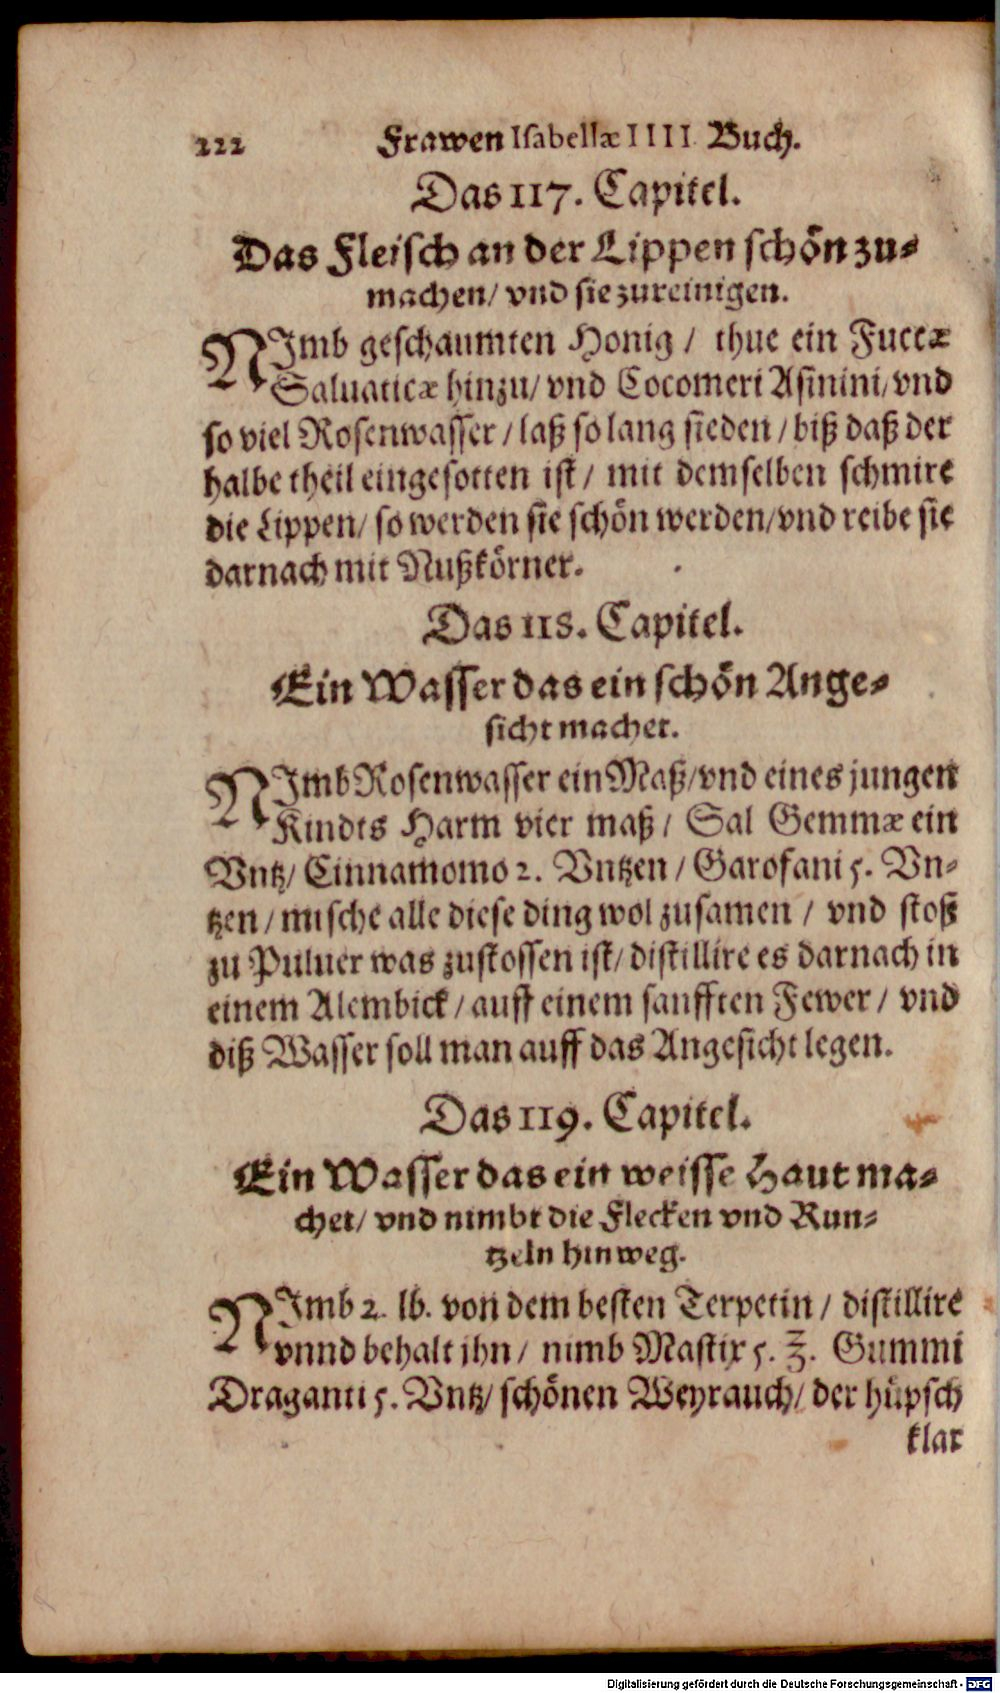 222 Frawen Isabellæ IIII. Buch.
Das 117. Capitel.
Das Fleisch an der Lippen schön zu-
machen/ vnd sie zureinigen.
NImb geschaumten Honig / thue ein Fuccæ
Saluaticæ hinzu/ vnd Cocomeri Asinini/ vnd
so viel Rosenwasser / laß so lang sieden / biß daß der
halbe theil eingesotten ist / mit demselben schmire
die Lippen/ so werden sie schön werden/ vnd reibe sie
darnach mit Nußkörner.
Das 118. Capitel.
Ein Wasser das ein schön Ange-
sicht machet.
NImb Rosenwasser ein Maß/ vnd eines jungen
Kindts Harm vier maß / Sal Gemmæ ein
Vntz/ Cinnamomo 2. Vntzen / Garofani 5. Vn-
tzen / mische alle diese ding wol zusamen / vnd stoß
zu Puluer was zustossen ist/ distillire es darnach in
einem Alembick / auff einem sanfften Fewer / vnd
diß Wasser soll man auff das Angesicht legen.
Das 119. Capitel.
Ein Wasser das ein weisse Haut ma-
chet/ vnd nimbt die Flecken vnd Run-
tzeln hinweg.
NImb 2. lb. von dem besten Terpetin / distillire
vnnd behalt ihn / nimb Mastix 5. ℥. Gummi
Draganti 5. Vntz/ schönen Weyrauch/ der hüpsch
klar
Digitalisierung gefördert durch die Deutsche Forschungsgemeinschaft - DFG